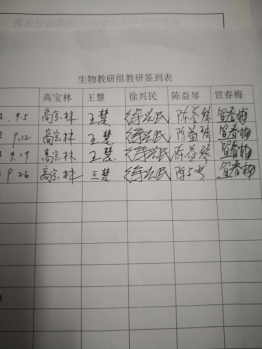 生物教研组教研签到表
高宝林 王慧 徐兴民 陈益琴 笪春梅
9.5 高宝林 王慧 徐兴民 陈益琴 笪春梅
9.12 高宝林 王慧 徐兴民 陈益琴 笪春梅
9.19 高宝林 王慧 徐兴民 陈益琴 笪春梅
9.26 高宝林 王慧 徐兴民 笪春梅